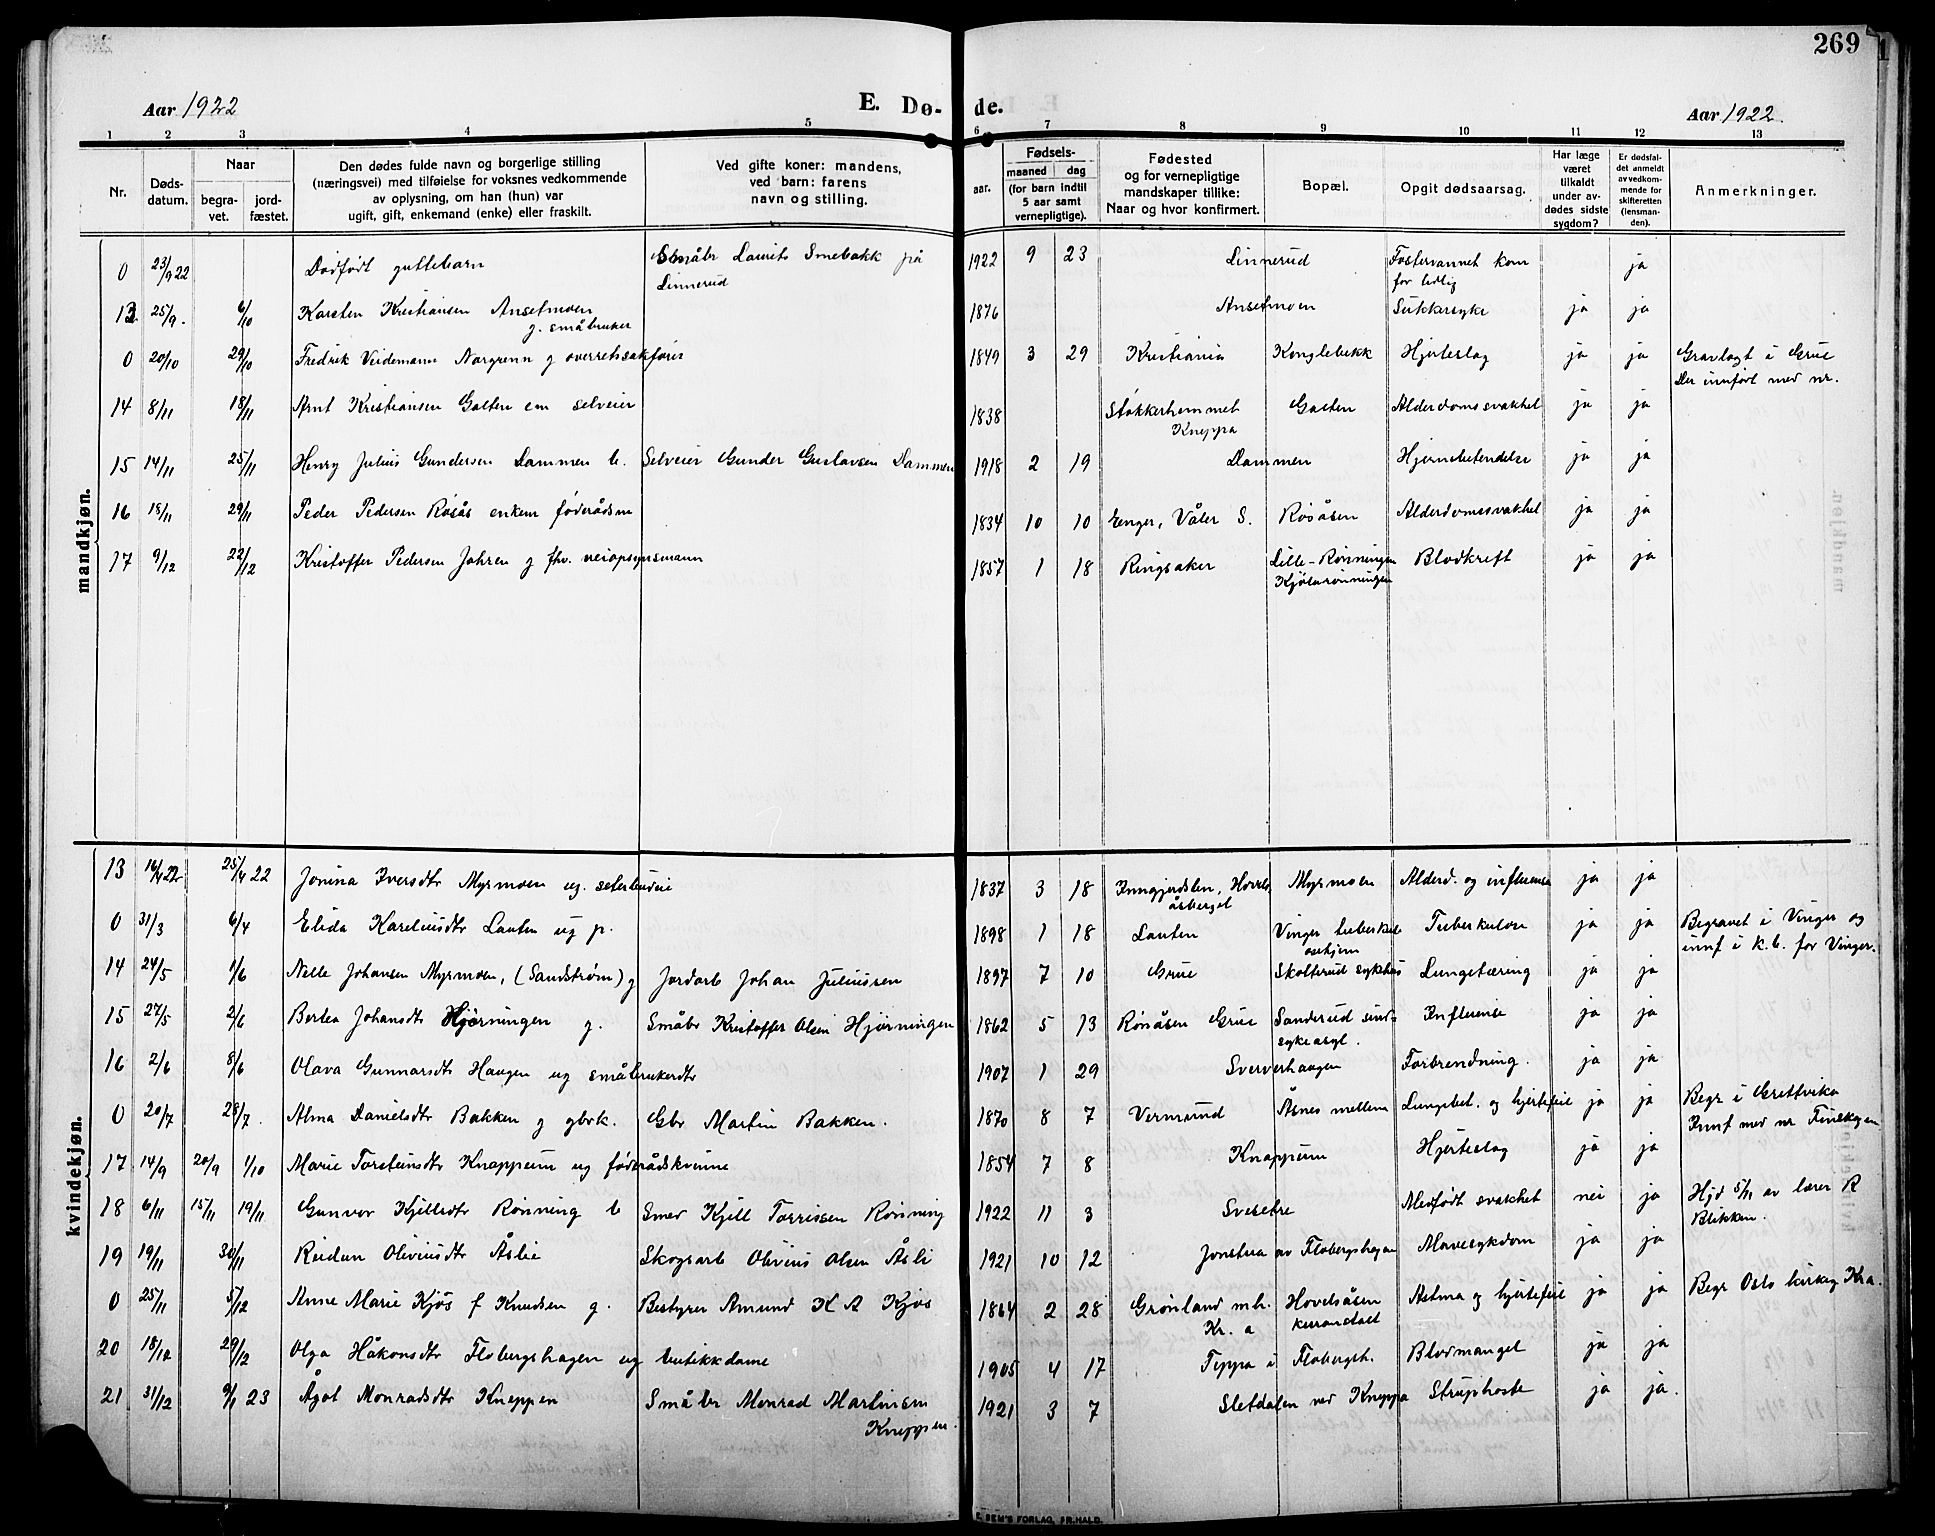 269
Aar 1922
E. Dø- de.
Aar 1922.
1 2 3 4 5 6 7 8 9 10 11 12 13
Nr.
Døds-
datum.
Naar
begra-
vet.
jord-
fæstet.
Den dødes fulde navn og borgerlige stilling
(næringsvei) med tilføielse for voksnes vedkommende
av oplysning, om han (hun) var
ugift, gift, enkemand (enke) eller fraskilt.
Ved gifte koner: mandens,
ved barn: farens
navn og stilling.
aar.
Fødsels-
maaned dag
(for barn indtil
5 aar samt
vernepligtige).
Fødested
og for vernepligtige
mandskaper tillike:
Naar og hvor konfirmert.
Bopæl.
Opgit dødsaarsag.
Har læge
været
tilkaldt
under av-
dødes sidste
sygdom?
Er dødsfal-
det anmeldt
av vedkom-
mende for
skifteretten
(lensman-
den).
Anmerkninger.
mandkjøn.
0 23/9 22 Dødfødt guttebarn Småbr Laurits Smebakk på 1922 9 23 Linnerud Fostervannet kom ja
Linnerud for tidlig
13. 25/9. 6/10 Karsten Kristiansen Anselmoen 1876 Anselmoen Sukkersyke ja ja
g. småbruker
0 20/10 29/10 Fredrik Veidemann Norgrenn g overretssakfører 1849 3 29 Kristiania Konglebekk Hjerteslag ja ja Gravlagt i Grue
Der innført med nr.
14 8/11 18/11 Arnt Kristiansen Galten em selveier 1838 Stokkerhemmet Galten Alderdomssvakhet ja ja
Kneppa
15 14/11 25/11 Henry Julius Gundersen Dammen b. Selveier Gunder Gustavsen Dammen 1918 2 19 Dammen Hjernebetendelse ja ja
16 18/11 29/11 Peder Pedersen Røsås enkem føderådsm 1834 10 10 Eenger, Våler S. Røsåsen Alderdomssvakhet ja ja
17 9/12 22/12 Kristoffer Pedersen Johren g fhv. veiopsynsmann 1857 1 18 Ringsaker Lille-Rønningen Blodkreft ja ja
Kjølarønningen
kvindekjøn.
13 16/4 22 25/4 22 Jonina Iversdtr Myrmoen ug. seterbudeie 1837 3 18 Inngjerdslen, Hovels Myrmoen Alderd. og influense ja ja
åsberget
0 31/3 6/4 Elida Kareliusdtr Lauten ug p. 1898 1 18 Lauten Vinger tuberkul Tuberkulose ja ja Begravet i Vinger og
osehjem innf i k.b. for Vinger.
14 24/5 1/6 Nelle Johansen Myrmoen, (Sandstrøm) g Jordarb Johan Juliussen 1897 7 10 Grue Skolterud sykehus Lungetæring ja ja
15 27/5 2/6 Bertea Johansdtr Hjørningen g. Småbr Kristoffer Olsen Hjørningen 1862 5 13 Rønåsen Grue Sanderud sind- Influense ja ja
sykeasyl.
16 2/6 8/6 Olava Gunnarsdtr Haugen ug småbrukerdtr 1907 1 29 Sververhaugen Forbrendning. ja ja
0 20/7 28/7. Alma Danielsdtr Bakken g gbrk. Gbr Martin Bakken. 1870 8 7 Vermund Åsnes mellem Lungebet. og hjertefeil ja ja Begr i Grettvika
Innf med nr Finskogen
17 14/9 20/9 1/10 Marie Torsteinsdtr Knappeum ug føderådskvinne 1854 7 8 Knappeum Hjerteslag ja ja
18 6/11 15/11 19/11 Gunvor Kjellsdtr Rønning b Smed Kjell Torrissen Rønning 1922 11 3 Svesetre Medfødt svakhet nei ja Hjd 5/11 av lærer R
Blikken.
19 19/11 30/11 Reidun Oliviusdtr Åslie Skogsarb Olivius Olsen Åsli 1921 10 12 Jonstua av Flobergshagen Mavesykdom ja ja
0 25/11 5/12 Anne Marie Kjøs f Knudsen g. Bestyrer Amund K A Kjøs 1864 2 28 Grønland mh. Hovelsåsen Astma og hjertefeil ja ja Begr Oslo kirkeg Kra.
Kr. a kuranstalt
20 18/12 29/12 Olga Håkonsdtr Flobergshagen ug butikkdame 1905 4 17 Teppa i Flobergsh. Blodmangel ja ja
21 31/12 9/1 23 Ågot Monradsdtr Kneppen Småbr Monrad Martinsen 1921 3 7 Sletdalen ved Kneppa Strupehoste ja ja.
Kneppen.
SEM'S FORLAG, FR.HALD.